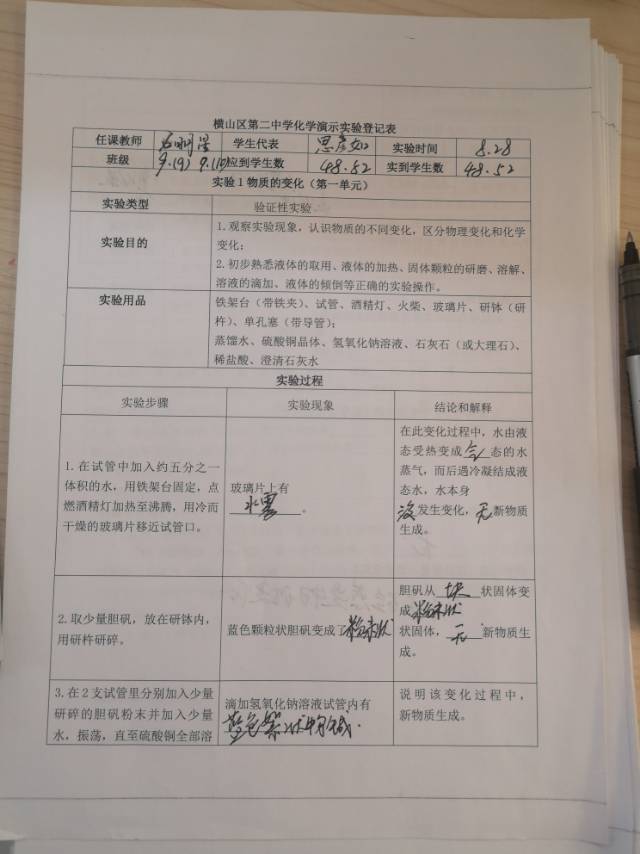 横山区第二中学化学演示实验登记表
任课教师 学生代表 思彦如 实验时间 8.28
班级 9.(9) 9.(10) 应到学生数 48.52 实到学生数 48.52
实验1物质的变化（第一单元）
实验类型 验证性实验
实验目的
1.观察实验现象，认识物质的不同变化，区分物理变化和化学
变化；
2.初步熟悉液体的取用、液体的加热、固体颗粒的研磨、溶解、
溶液的滴加、液体的倾倒等正确的实验操作。
实验用品
铁架台（带铁夹）、试管、酒精灯、火柴、玻璃片、研钵（研
杵）、单孔塞（带导管）；
蒸馏水、硫酸铜晶体、氢氧化钠溶液、石灰石（或大理石）、
稀盐酸、澄清石灰水
实验过程
实验步骤 实验现象 结论和解释
1.在试管中加入约五分之一
体积的水，用铁架台固定，点
燃酒精灯加热至沸腾，用冷而
干燥的玻璃片移近试管口。
玻璃片上有
水雾。
在此变化过程中，水由液
态受热变成气态的水
蒸气，而后遇冷凝结成液
态水，水本身
没发生变化，无新物质
生成。
2.取少量胆矾，放在研钵内，
用研杵研碎。
蓝色颗粒状胆矾变成了粉末状
胆矾从块状固体变
成粉末状
状固体，无新物质生
成。
3.在2支试管里分别加入少量
研碎的胆矾粉末并加入少量
水，振荡，直至硫酸铜全部溶
滴加氢氧化钠溶液试管内有
蓝色絮状
说明该变化过程中，
新物质生成。